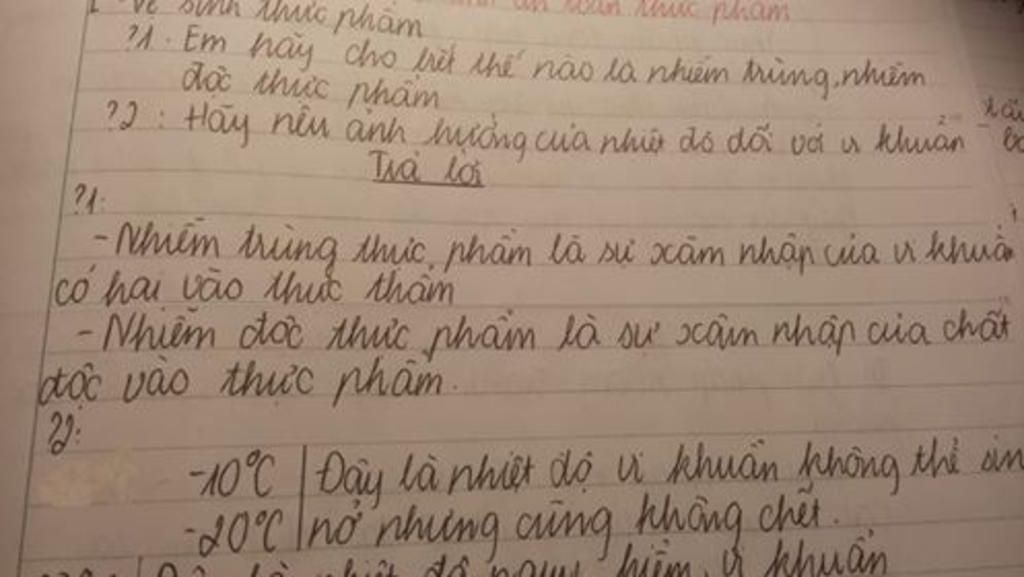 I - Vệ sinh thực phẩm an toàn thực phẩm
?1. Em hãy cho biết thế nào là nhiễm trùng, nhiễm
độc thực phẩm
?2 : Hãy nêu ảnh hưởng của nhiệt độ đối với vi khuẩn
Trả lời
?1:
- Nhiễm trùng thực phẩm là sự xâm nhập của vi khuẩn
có hại vào thực thẩm
- Nhiễm độc thực phẩm là sự xâm nhập của chất
độc vào thực phẩm.
?2:
-10°C Đây là nhiệt độ vi khuẩn không thể sin
-20°C nở nhưng cũng không chết.
là nhiệt độ nguy hiểm, vi khuẩn